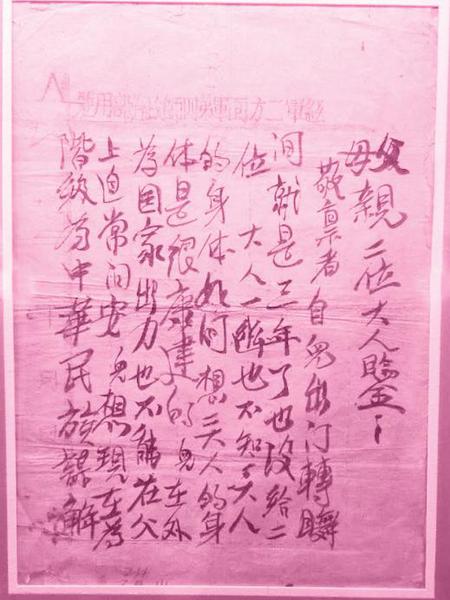 軍二方面軍
父母親二位大人
敬禀者自兒出门轉瞬
间就是三年了也没给二
位大人一也不知二大人
的身体如何想二大人的身
体是很康建的兒在外
為国家出力也不能在父
上常问安兒想現在為
階級為中華民族謀解